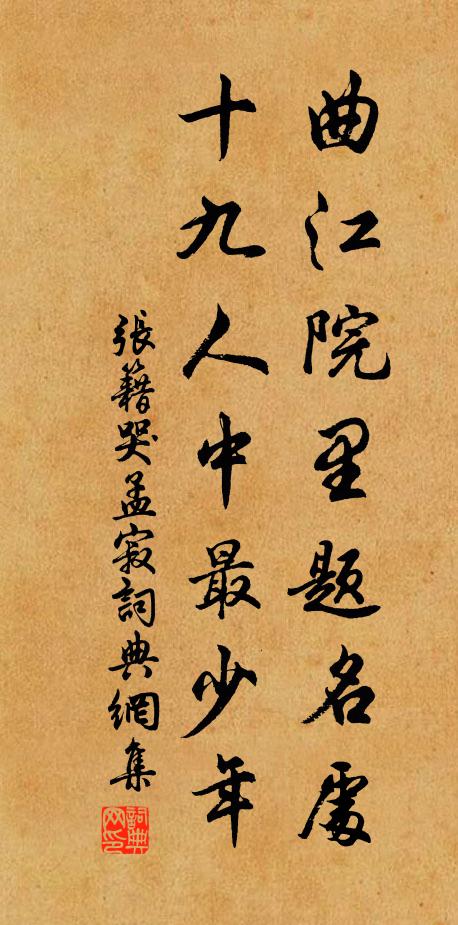 曲江院里題名處
十九人中最少年
張籍哭孟寂詞典網集
詞典网印